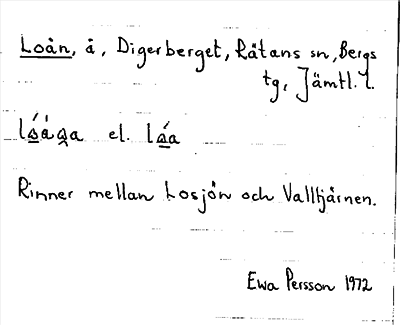 Loån, å, Digerberget, Rätans sn, Bergs
tg, Jämtl. l.
lóåŋa el. lóa
Rinner mellan Losjön och Valltjärnen.
Ewa Persson 1972